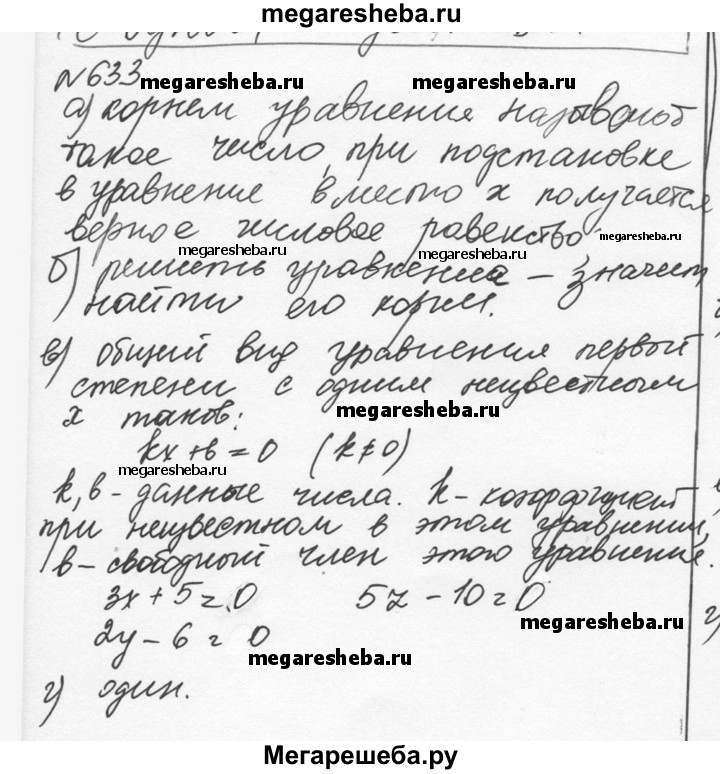 megaresheba.ru
№633 megaresheba.ru megaresheba.ru
а) корнем уравнения называют
такое число, при подстановке
в уравнение вместо х получается
верное числовое равенство megaresheba.ru
megaresheba.ru megaresheba.ru
б) решить уравнение – значит
найти его корни.
в) общий вид уравнения первой
степени с одним неизвестным
х таков: megaresheba.ru
kx + b = 0 (k ≠ 0)
megaresheba.ru
k, b - данные числа. k - коэффициент
при неизвестном в этом уравнении,
b - свободный член этого уравнения.
3x + 5 = 0 5z - 10 = 0
megaresheba.ru
2y - 6 = 0
megaresheba.ru
г) один.
Мегарешеба.ру